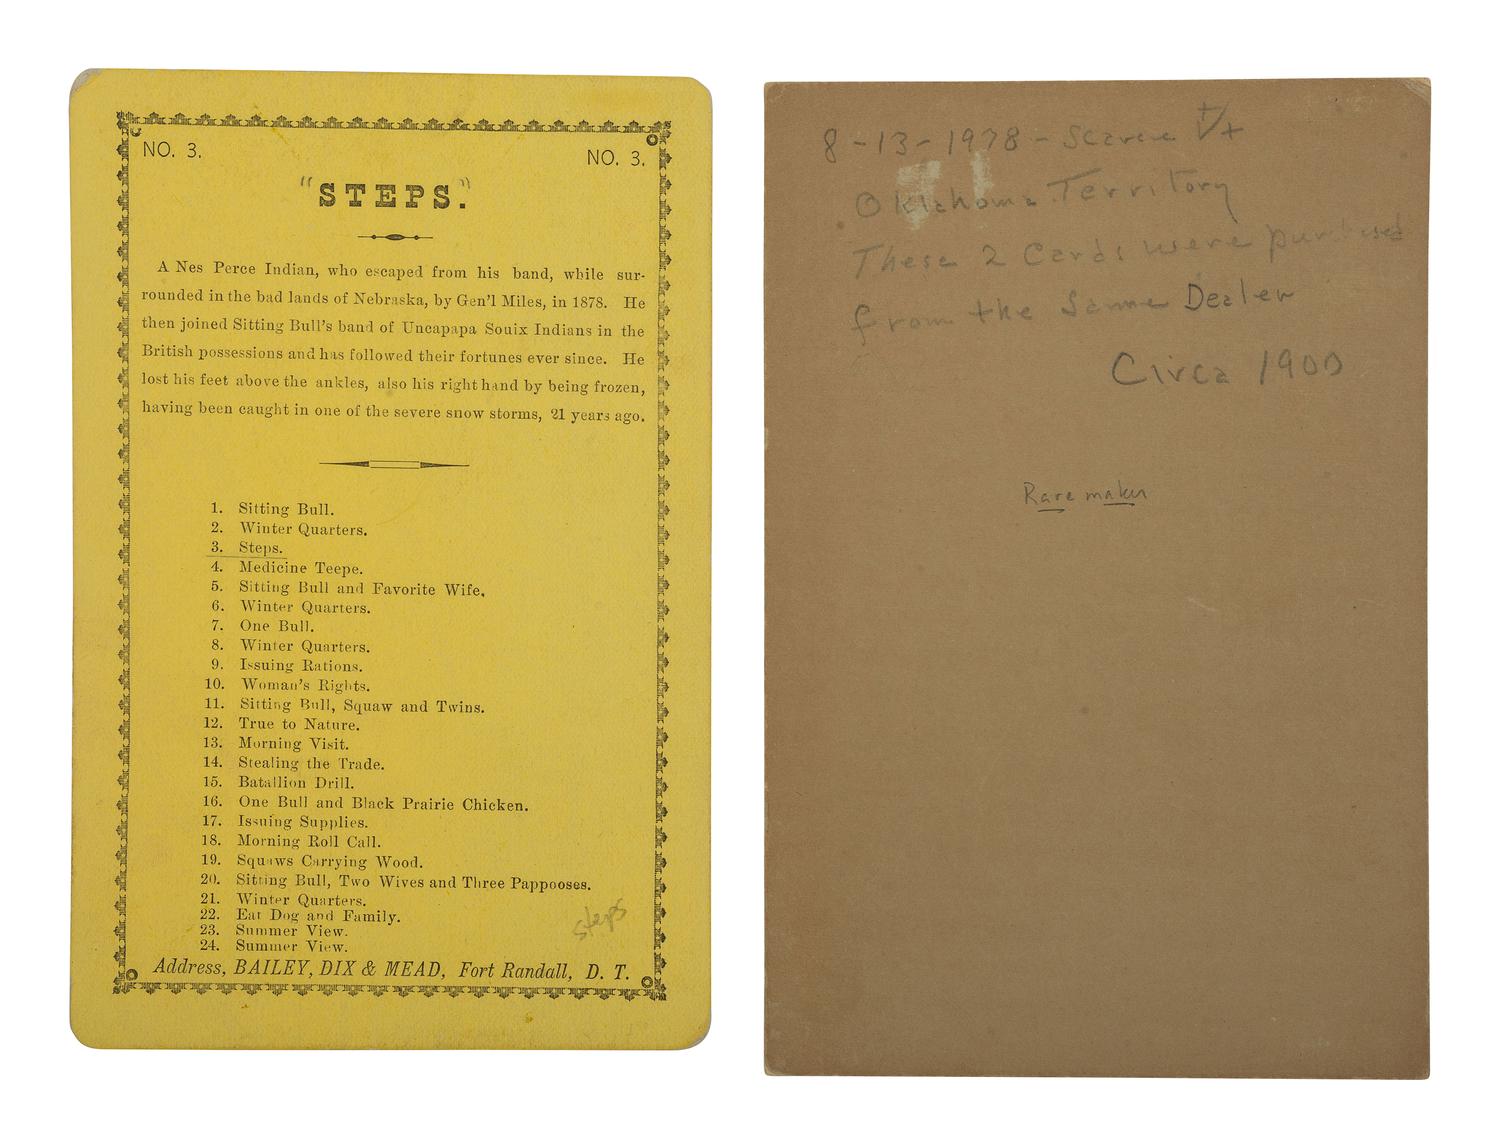 NO. 3.
NO. 3.
"STEPS."
A Nes Perce Indian, who escaped from his band, while sur-
rounded in the bad lands of Nebraska, by Gen'l Miles, in 1878. He
then joined Sitting Bull's band of Uncapapa Souix Indians in the
British possessions and has followed their fortunes ever since. He
lost his feet above the ankles, also his right hand by being frozen,
having been caught in one of the severe snow storms, 21 years ago.
1. Sitting Bull.
2. Winter Quarters.
3. Steps.
4. Medicine Teepe.
5. Sitting Bull and Favorite Wife.
6. Winter Quarters.
7. One Bull.
8. Winter Quarters.
9. Issuing Rations.
10. Woman's Rights.
11. Sitting Bull, Squaw and Twins.
12. True to Nature.
13. Morning Visit.
14. Stealing the Trade.
15. Batallion Drill.
16. One Bull and Black Prairie Chicken.
17. Issuing Supplies.
18. Morning Roll Call.
19. Squaws Carrying Wood.
20. Sitting Bull, Two Wives and Three Pappooses.
21. Winter Quarters.
22. Eat Dog and Family.
23. Summer View.
24. Summer View.
steps
Address, BAILEY, DIX & MEAD, Fort Randall, D. T.
8-13-1978 - Scarce
Oklahoma Territory
These 2 Cards were purchased
from the Same Dealer
Circa 1900
Rare maker